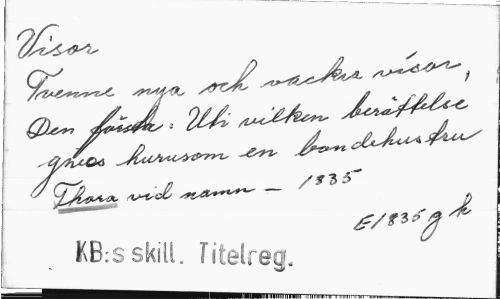 Visor
Tvenne nya och vackra visor,
Den första: Uti vilken berättelse
gives hurusom en bondehustru
Thora vid namn – 1835
E1835 g k
KB:s skill. Titelreg.